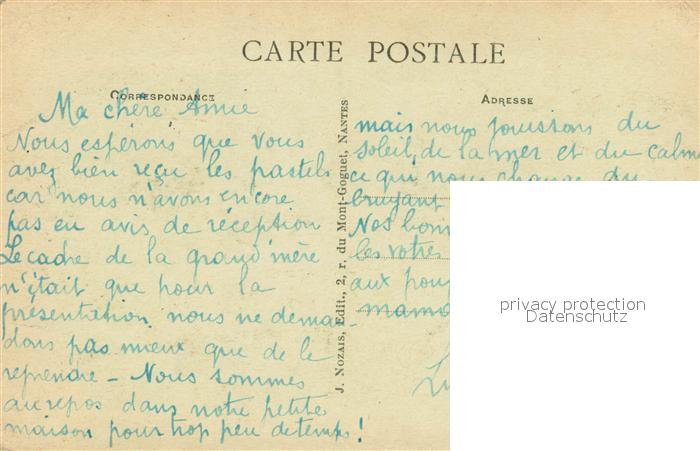 CARTE POSTALE
CORRESPONDANCE
Ma chère Amie
Nous espérons que vous
avez bien reçu les pastels
car nous n'avons encore
pas eu avis de réception
Le cadre de la grand'mère
n'était que pour la
présentation nous ne deman-
dons pas mieux que de le
reprendre - Nous sommes
au repos dans notre petite
maison pour trop peu de temps!
J. NOZAIS, Edit., 2, r. du Mont-Goguet, NANTES
ADRESSE
mais nous jouissons du
soleil, de la mer et du calme
ce qui nous change du
bruyant
Nos bonn
les votres
aux
mama
privacy protection
Datenschutz